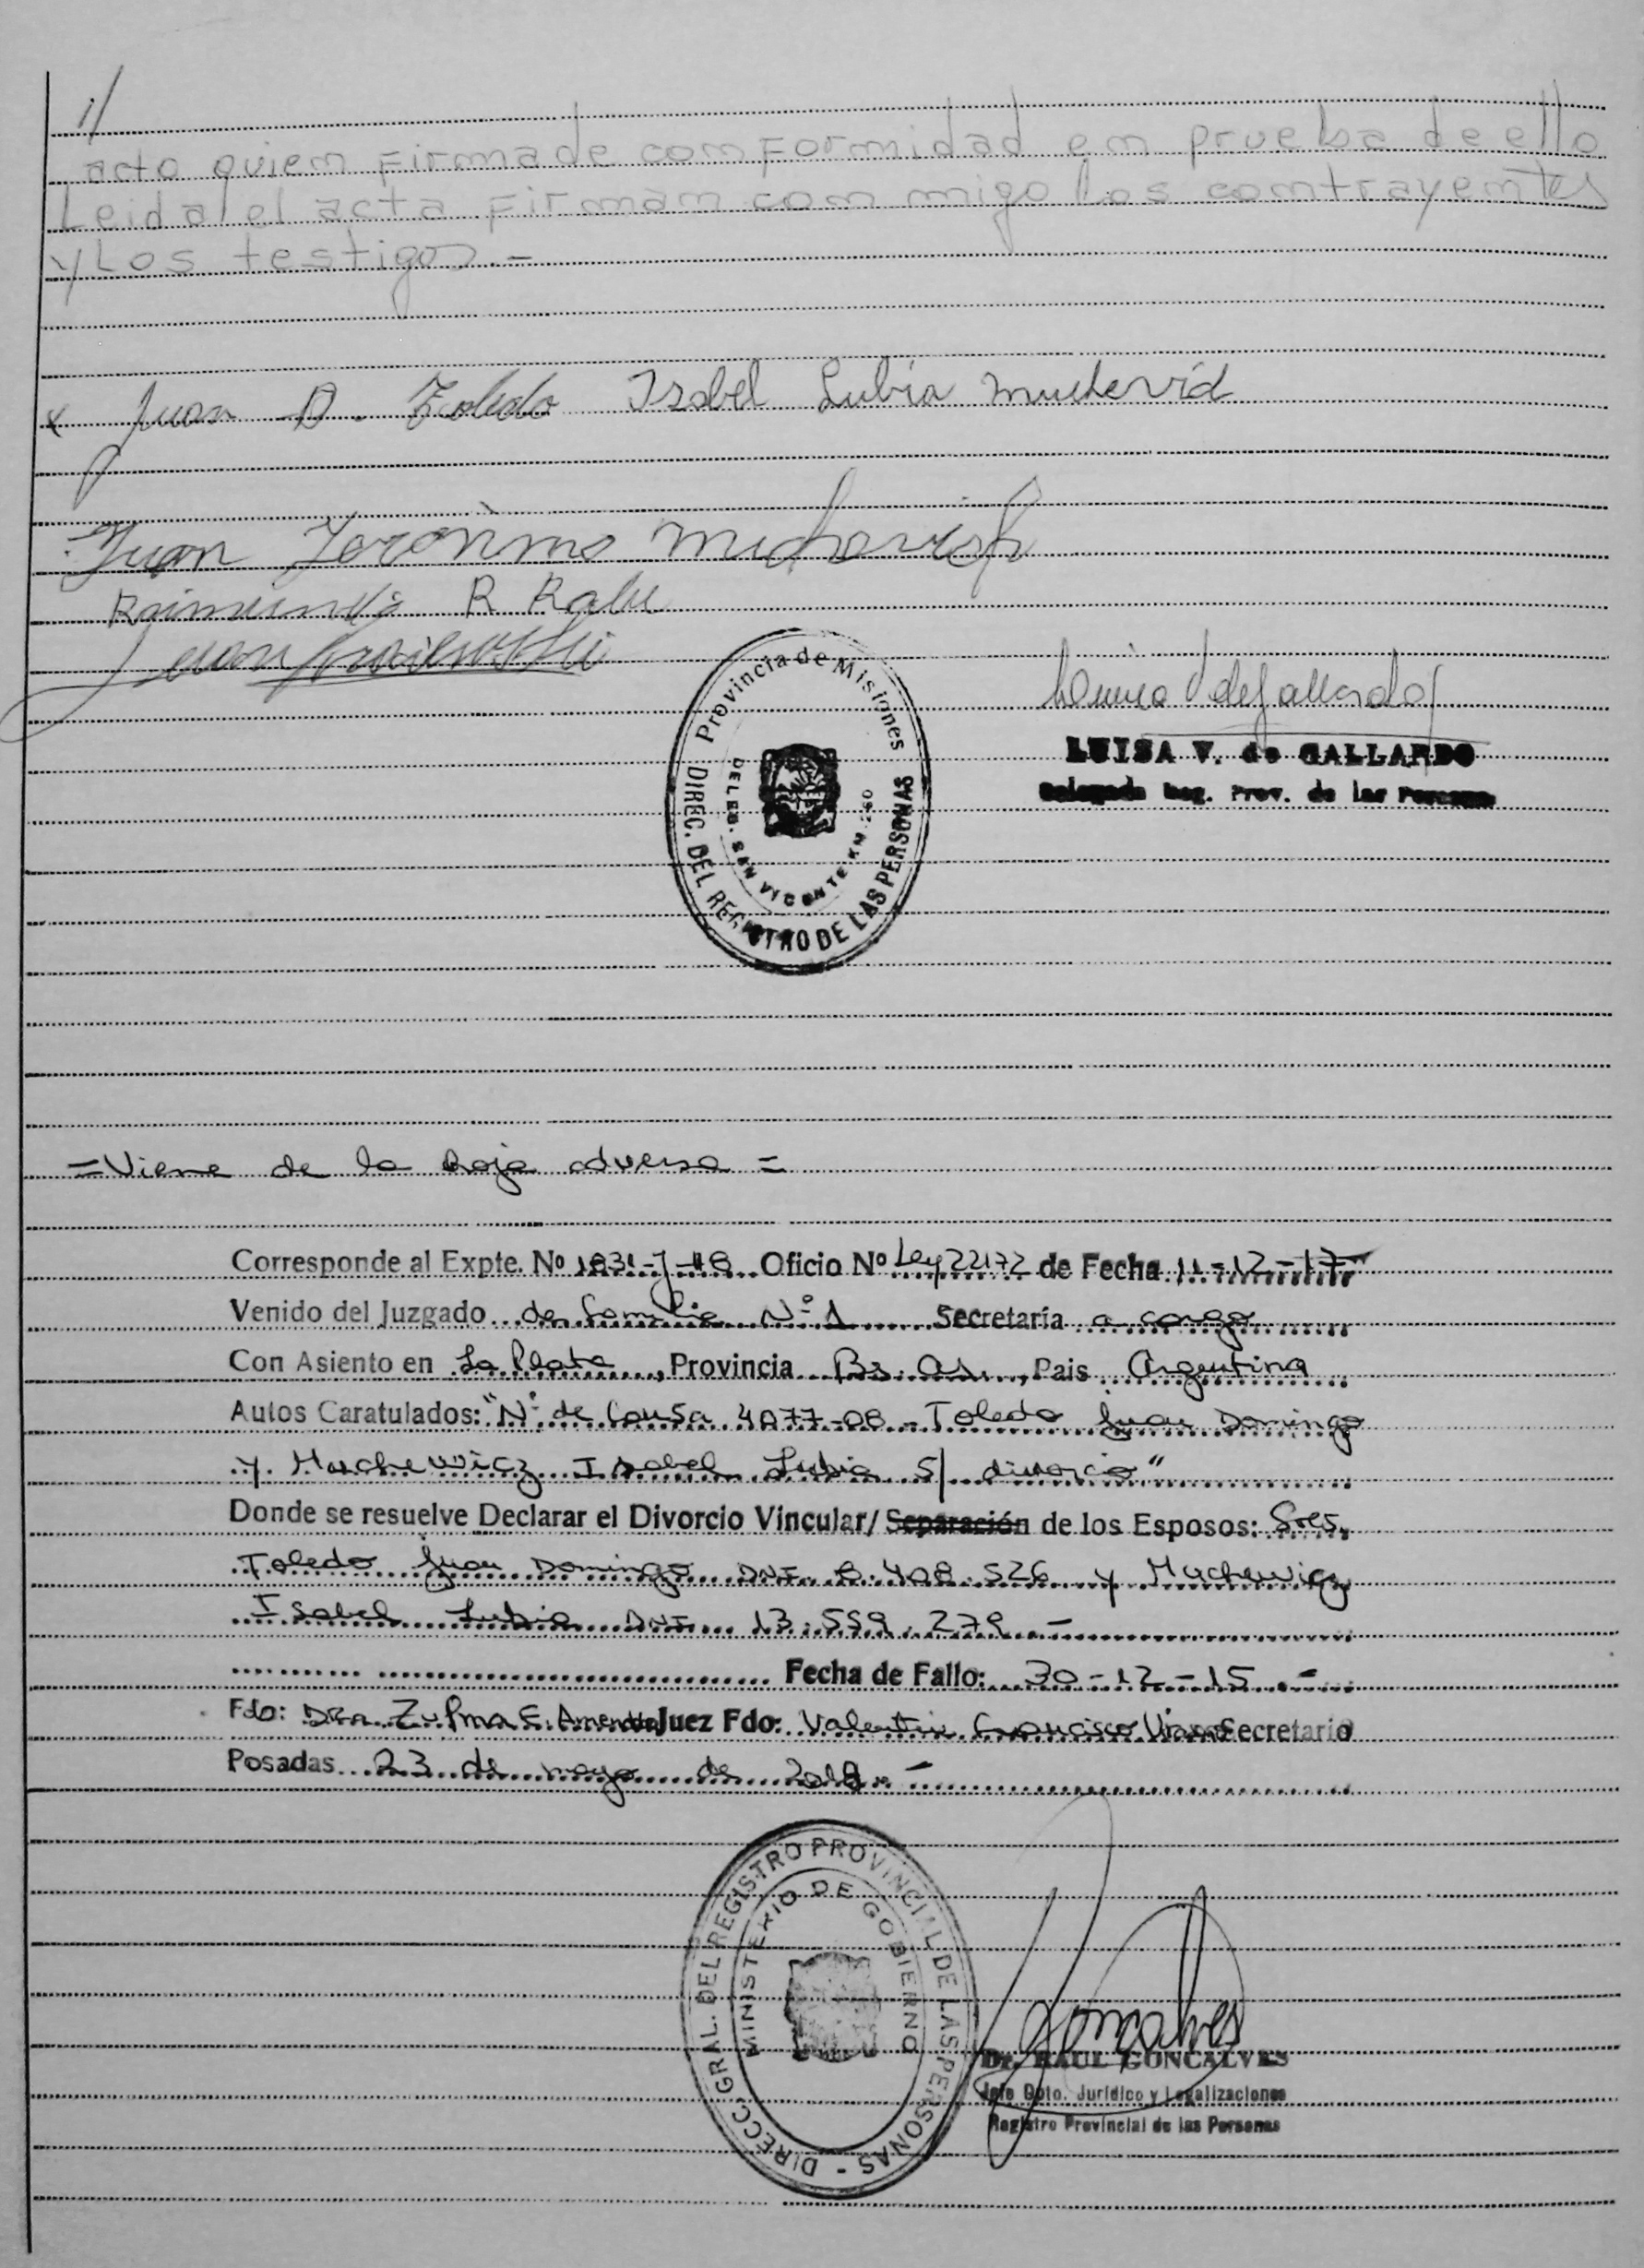 //
acto quien firma de conformidad en prueba de ello
Leida el acta firman conmigo los contrayentes
y Los testigos.-
x Juan D. Toledo Isabel Lubia
Juan Jerónimo
Raimundo R
Juan
Provincia de Misiones
DIREC. DEL REGISTRO DE LAS PERSONAS
DELEG. SAN VICENTE KM.
LUISA V. de GALLARDO
Delegada Reg. Prov. de las Personas
= Viene de la hoja adversa =
Corresponde al Expte. Nº 1831-J-18 Oficio Nº Ley 22172 de Fecha 11-12-17
Venido del Juzgado de familia Nº 1 Secretaría a cargo
Con Asiento en La Plata, Provincia Bs. As., Pais Argentina
Autos Caratulados: "Nº de Causa 4077-08 - Toledo Juan Domingo
y Muchewicz Isabel Lubia S/ divorcio"
Donde se resuelve Declarar el Divorcio Vincular/ Separación de los Esposos: Sres.
Toledo Juan Domingo DNI 8.408.526 y Muchewicz
Isabel Lubia DNI 13.559.279.-
Fecha de Fallo: 30-12-15.-
Fdo: DRA Zulma E. Juez Fdo: Valentin Francisco Secretario
Posadas 23 de mayo de 2018.-
DIRECC. GRAL. DEL REGISTRO PROVINCIAL DE LAS PERSONAS -
MINISTERIO DE GOBIERNO
Goncalves
Dr. RAUL GONCALVES
Jefe Dpto. Jurídico y Legalizaciones
Registro Provincial de las Personas